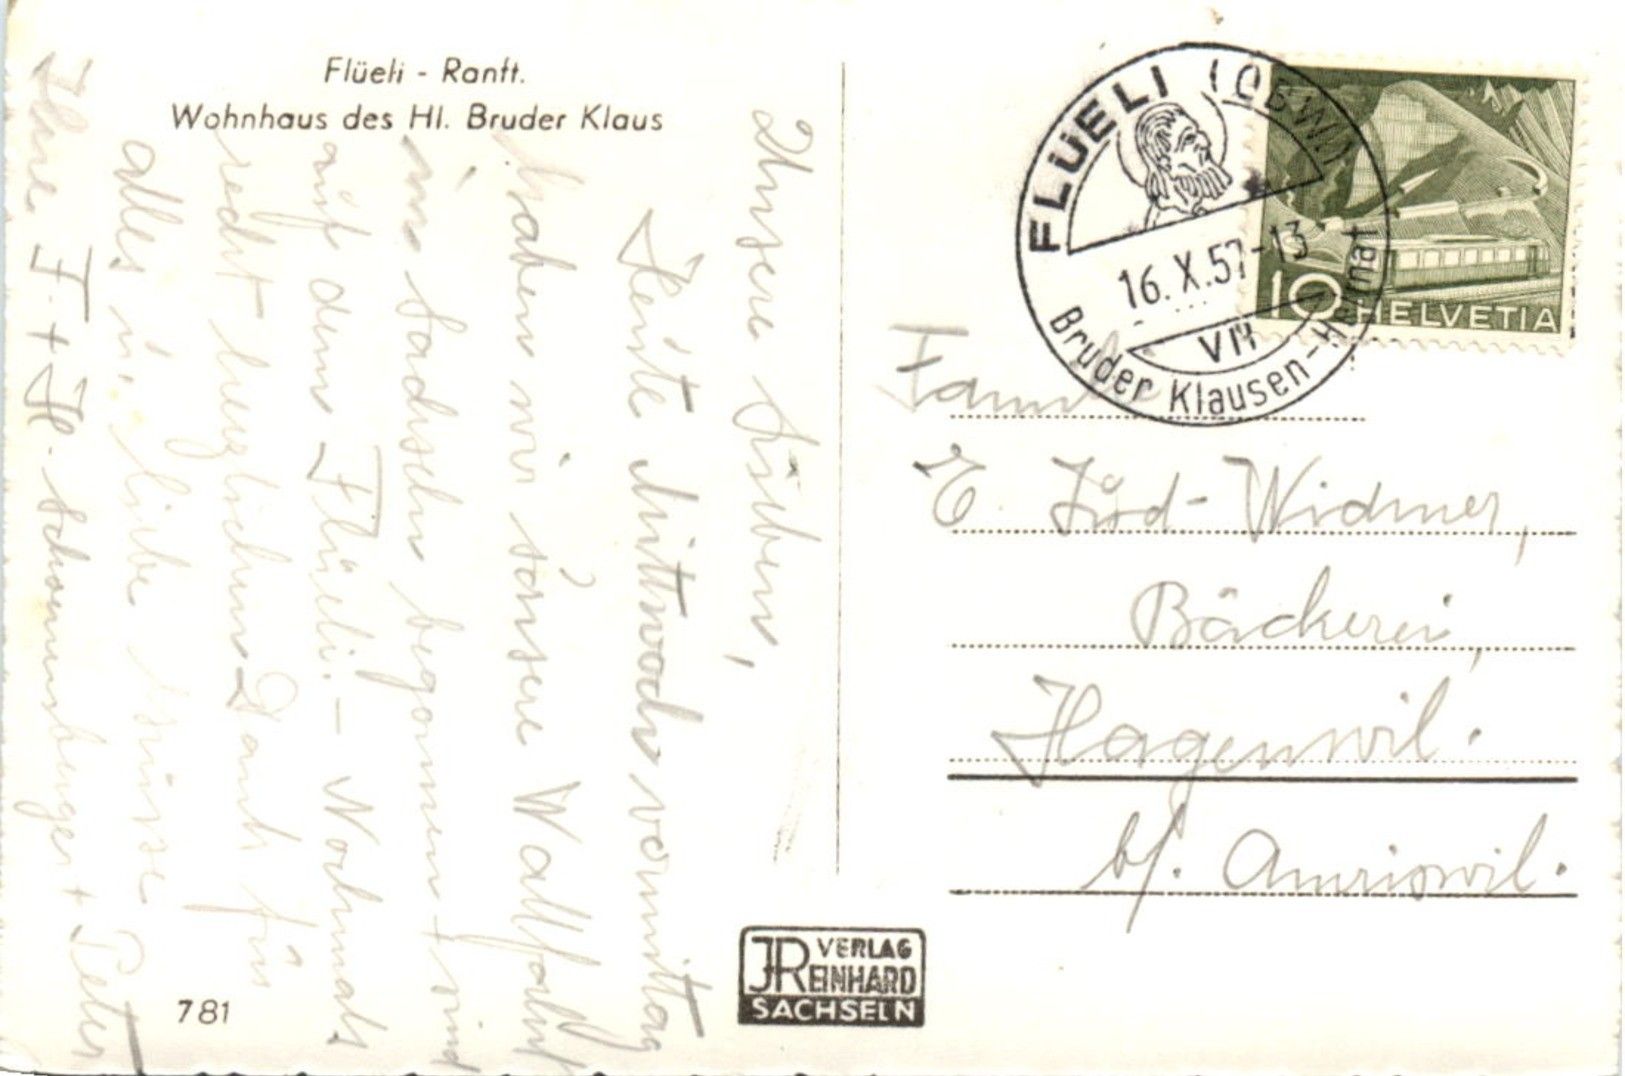 Flüeli - Ranft.
Wohnhaus des Hl. Bruder Klaus
Unsere Lieben,
Heute Mittwochvormittag
haben wir unsere Wallfahrt
in Sachseln begonnen + sind
auf dem Flüeli. – Nochmals
recht herzlichen Dank für
alles u. liebe Grüsse
Ihre F. + H. Schoenenberger + Peter
781
FLÜELI (OBW.)
16. X. 57-13
VII
Bruder Klausen-Heimat
10 HELVETIA
Familie
E. -Widmer,
Bäckerei,
Hagenwil.
b/. Amriswil.
JR VERLAG
REINHARD
SACHSELN